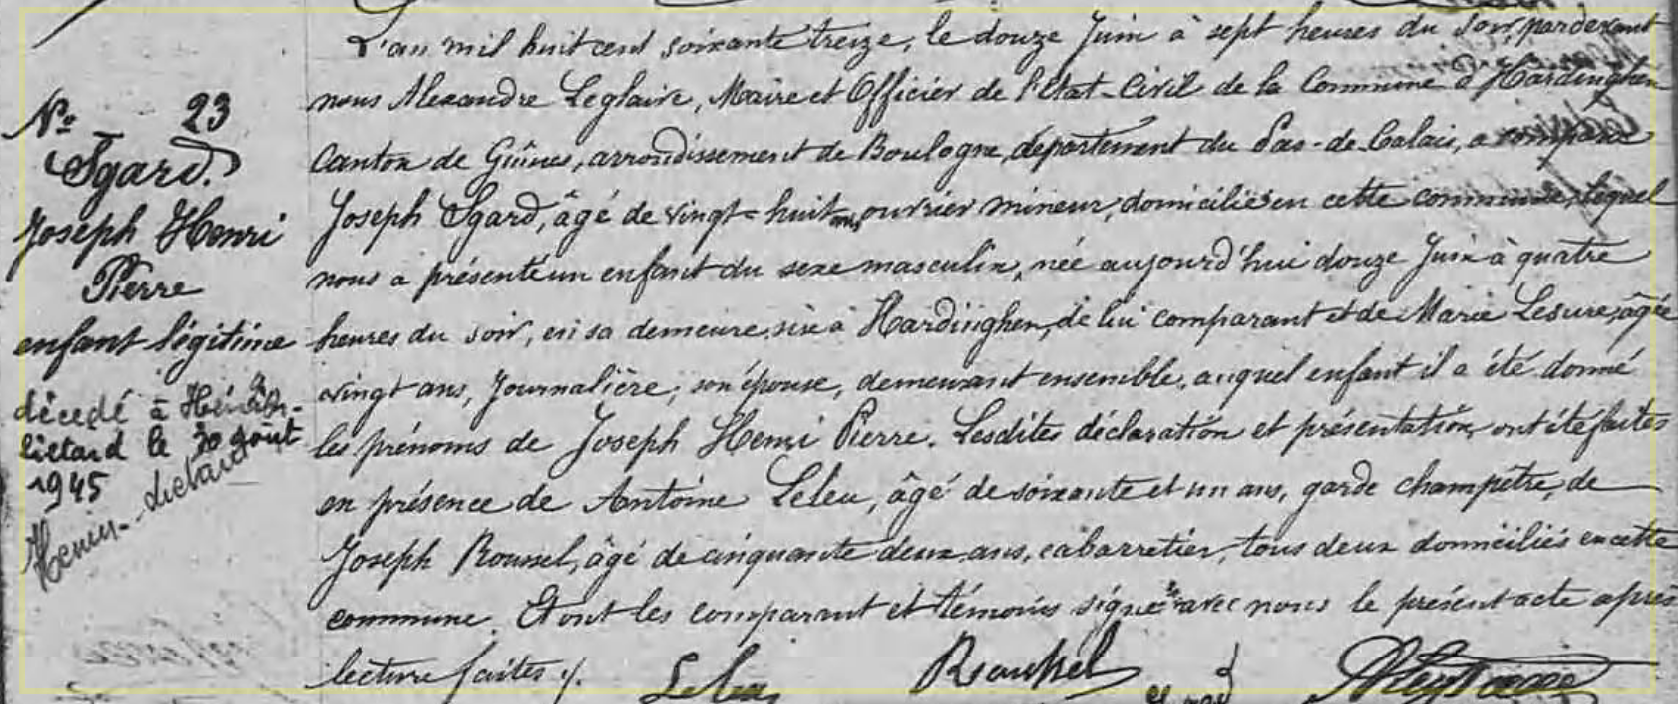 Nº 23
Sgard.
Joseph Henri
Pierre
enfant légitime
décedé à Hénin-
lietard le 30 août
1945
Henin-Lietard
L'an mil huit cent soixante treize, le douze Juin à sept heures du soir, pardevant
nous Alexandre Leglaive, Maire et Officier de l'Etat-Civil de la Commune d'Hardinghen
Canton de Guînes, arrondissement de Boulogne, département du Pas-de-Calais, a comparu
Joseph Sgard, âgé de vingt-huit ans, ouvrier mineur, domicilié en cette commune, lequel
nous a présenté un enfant du sexe masculin, née aujourd'hui douze Juin à quatre
heures du soir, en sa demeure sise à Hardinghen, de lui comparant et de Marie Lesure, âgée
vingt ans, Journalière, son épouse, demeurant ensemble, auquel enfant il a été donné
les prénoms de Joseph Henri Pierre. Lesdites déclaration et présentation ont été faites
en présence de Antoine Leleu, âgé de soixante et un ans, garde champêtre, de
Joseph Roussel, âgé de cinquante deux ans, cabarretier, tous deux domiciliés en cette
commune. Et ont les comparant et témoins signé avec nous le présent acte après
lecture faites ./.
Leleu Roussel